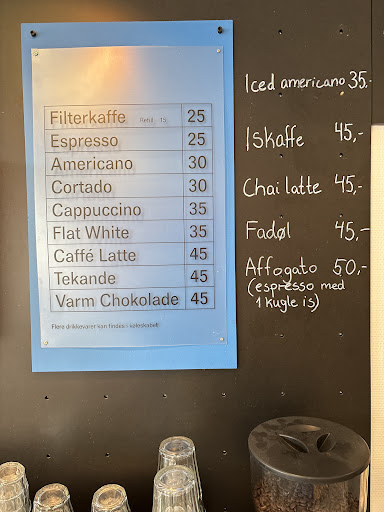 Filterkaffe Refill 15 25
Espresso 25
Americano 30
Cortado 30
Cappuccino 35
Flat White 35
Caffé Latte 45
Tekande 45
Varm Chokolade 45
Flere drikkevarer kan findes i køleskabet!
Iced americano 35,-
Iskaffe 45,-
Chai latte 45,-
Fadøl 45,-
Affogato 50,-
(espresso med
1 kugle is)